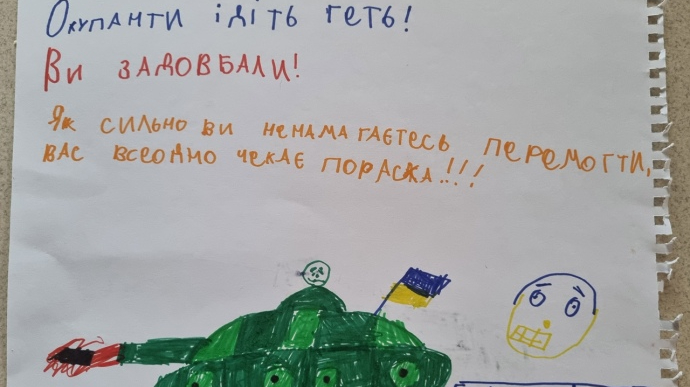 Окупанти ідіть геть!
Ви задовбали!
Як сильно ви ненамагаєтесь перемогти,
вас всеодно чекає поразка!!!